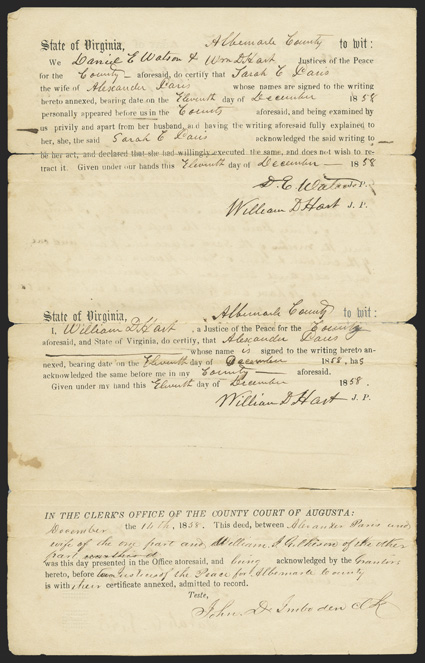 State of Virginia, Albemarle County to wit:
We Daniel E Watson & Wm D. Hart Justices of the Peace
for the County aforesaid, do certify that Sarah E Davis
the wife of Alexander Davis whose names are signed to the writing
hereto annexed, bearing date on the Eleventh day of December 1858
personally appeared before us in the County aforesaid, and being examined by
us privily and apart from her husband, and having the writing aforesaid fully explained to
her, she, the said Sarah E Davis acknowledged the said writing to
be her act, and declared that she had willingly executed the same, and does not wish to re-
tract it. Given under our hands this Eleventh day of December 1858
D. E Watson J. P.
William D Hart J. P.
State of Virginia, Albemarle County to wit:
I, William D. Hart, a Justice of the Peace for the County
aforesaid, and State of Virginia, do certify, that Alexander Davis
whose name is signed to the writing hereto an-
nexed, bearing date on the Eleventh day of December 1858, has
acknowledged the same before me in my County aforesaid.
Given under my hand this Eleventh day of December 1858.
William D Hart J. P.
IN THE CLERK'S OFFICE OF THE COUNTY COURT OF AUGUSTA:
December the 14th, 1858. This deed, between Alexander Davis and
wife of the one part and William A Gilkeson of the other
part
was this day presented in the Office aforesaid, and being acknowledged by the Grantors
hereto, before two Justices of the Peace for Albemarle County
is with their certificate annexed, admitted to record.
Teste,
John D Imboden Clk